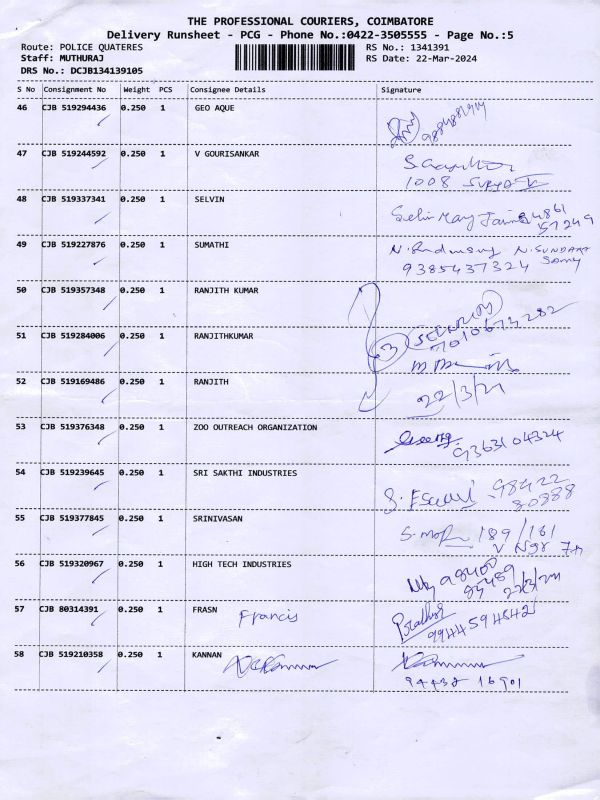 THE PROFESSIONAL COURIERS, COIMBATORE
Delivery Runsheet - PCG - Phone No.:0422-3505555 - Page No.:5
Route: POLICE QUATERES RS No.: 1341391
Staff: MUTHURAJ RS Date: 22-Mar-2024
DRS No.: DCJB134139105
S No Consignment No Weight PCS Consignee Details Signature
46 CJB 519294436 0.250 1 GEO AQUE
47 CJB 519244592 0.250 1 V GOURISANKAR
1008
48 CJB 519337341 0.250 1 SELVIN
Selvin Mary 94861
57249
49 CJB 519227876 0.250 1 SUMATHI
N. SUNDARA
Samy
9385437324
50 CJB 519357348 0.250 1 RANJITH KUMAR
SECURITY
7010673282
51 CJB 519284006 0.250 1 RANJITHKUMAR
3
52 CJB 519169486 0.250 1 RANJITH
22/3/24
53 CJB 519376348 0.250 1 ZOO OUTREACH ORGANIZATION
9363104324
54 CJB 519239645 0.250 1 SRI SAKTHI INDUSTRIES
98422
30888
55 CJB 519377845 0.250 1 SRINIVASAN
189/161
56 CJB 519320967 0.250 1 HIGH TECH INDUSTRIES
22/3/24
57 CJB 80314391 0.250 1 FRASN Francis
9944594842
58 CJB 519210358 0.250 1 KANNAN
94438 16901